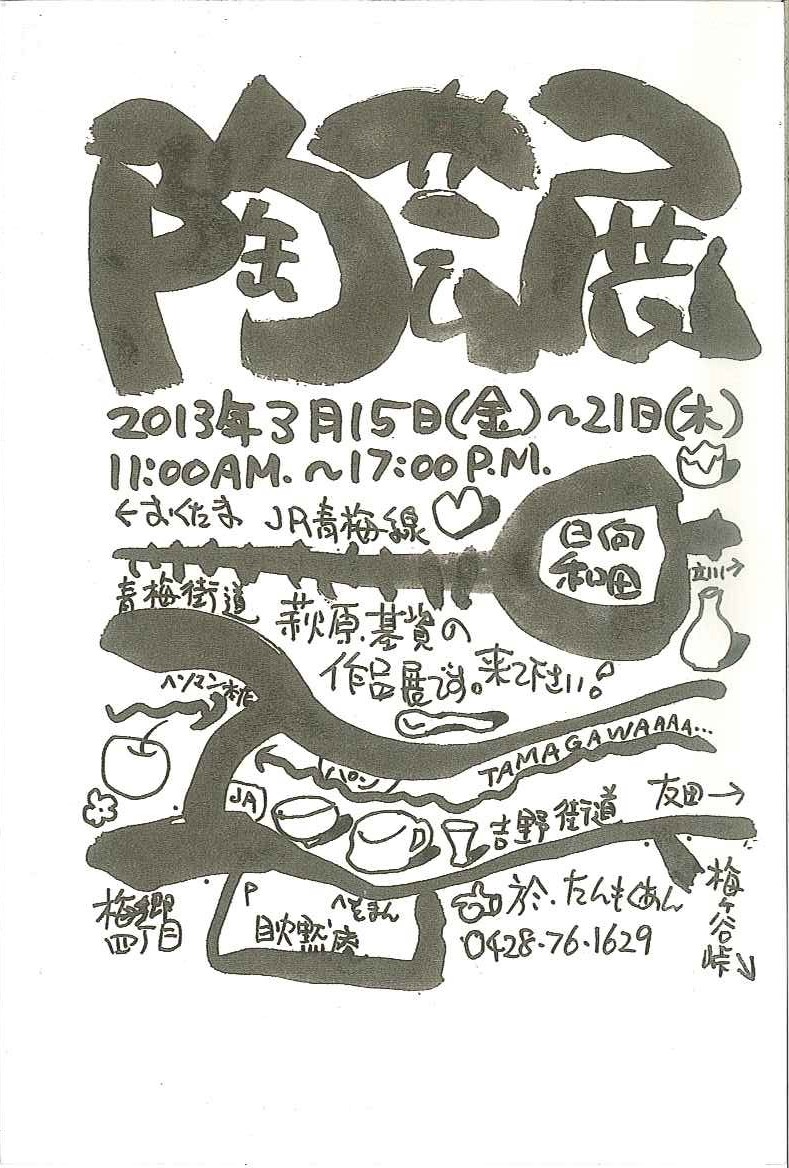 陶芸展
2013年3月15日(金)~21日(木)
11:00AM.~17:00P.M.
←おくたま JR青梅線
日向
和田
立川→
青梅街道
萩原.基資の
作品展です。来て下さい!
ヘソマン本店
TAMAGAWAAAA...
JA
吉野街道
友田→
梅郷
四丁目
P
へそまん
於.たんもくあん
0428-76-1629
梅ヶ谷峠